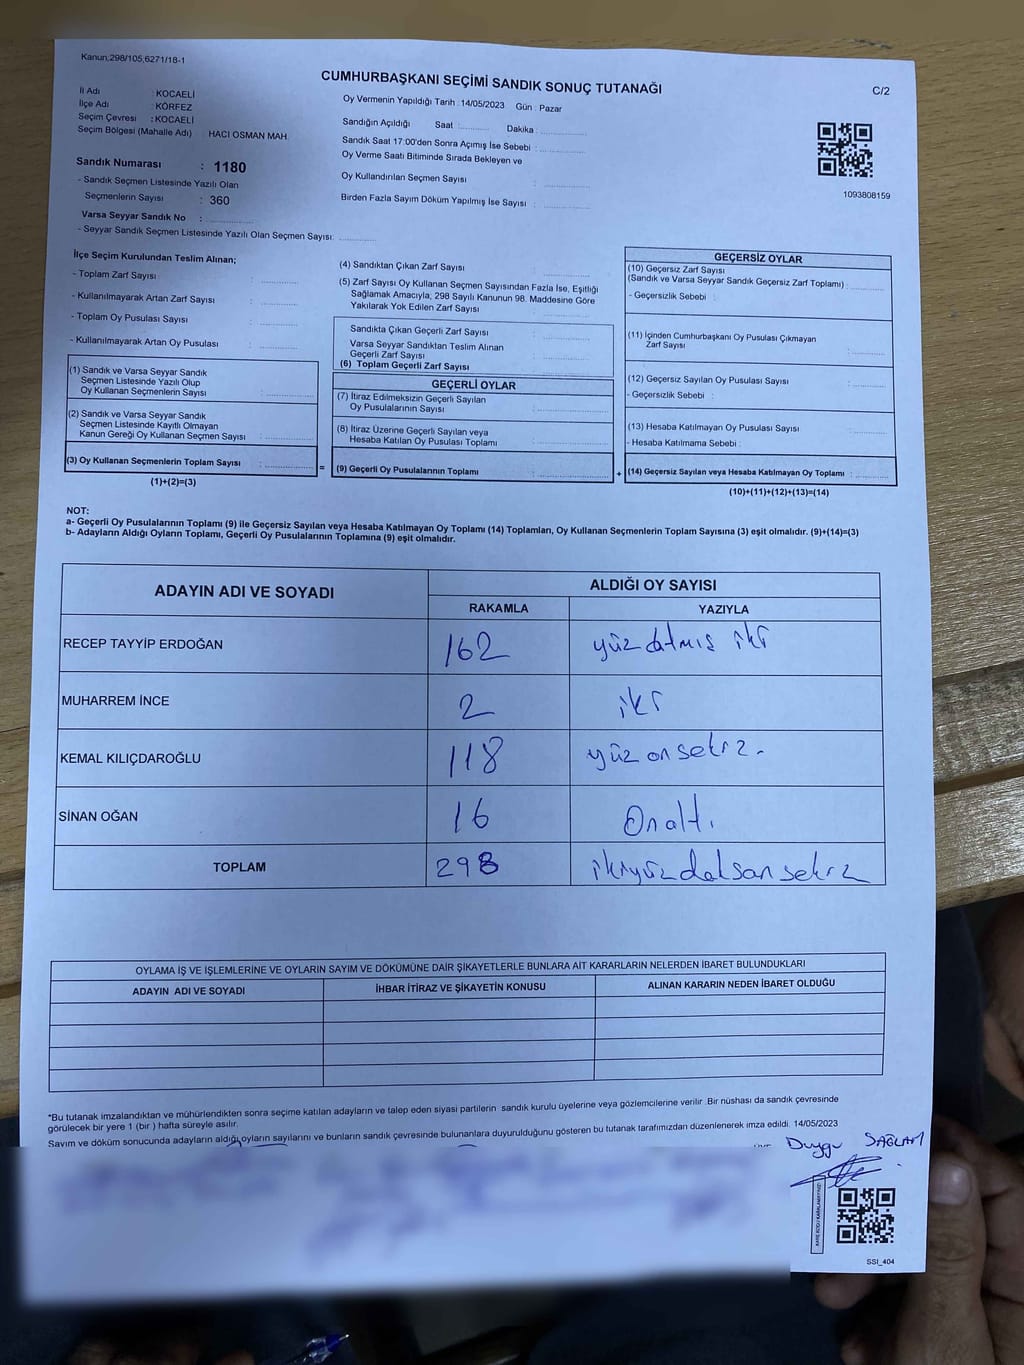 Kanun;298/105,6271/18-1
CUMHURBAŞKANI SEÇİMİ SANDIK SONUÇ TUTANAĞI
C/2
İl Adı : KOCAELİ
İlçe Adı : KÖRFEZ
Seçim Çevresi : KOCAELİ
Seçim Bölgesi (Mahalle Adı) : HACI OSMAN MAH.
Sandık Numarası : 1180
- Sandık Seçmen Listesinde Yazılı Olan
Seçmenlerin Sayısı : 360
Varsa Seyyar Sandık No :
- Seyyar Sandık Seçmen Listesinde Yazılı Olan Seçmen Sayısı:
Oy Vermenin Yapıldığı Tarih : 14/05/2023 Gün : Pazar
Sandığın Açıldığı Saat : Dakika :
Sandık Saat 17:00'den Sonra Açımış İse Sebebi :
Oy Verme Saati Bitiminde Sırada Bekleyen ve
Oy Kullandırılan Seçmen Sayısı :
Birden Fazla Sayım Döküm Yapılmış İse Sayısı :
1093808159
İlçe Seçim Kurulundan Teslim Alınan;
- Toplam Zarf Sayısı :
- Kullanılmayarak Artan Zarf Sayısı :
- Toplam Oy Pusulası Sayısı :
- Kullanılmayarak Artan Oy Pusulası :
(1) Sandık ve Varsa Seyyar Sandık
Seçmen Listesinde Yazılı Olup
Oy Kullanan Seçmenlerin Sayısı :
(2) Sandık ve Varsa Seyyar Sandık
Seçmen Listesinde Kayıtlı Olmayan
Kanun Gereği Oy Kullanan Seçmen Sayısı :
(3) Oy Kullanan Seçmenlerin Toplam Sayısı :
(1)+(2)=(3)
(4) Sandıktan Çıkan Zarf Sayısı :
(5) Zarf Sayısı Oy Kullanan Seçmen Sayısından Fazla İse, Eşitliği
Sağlamak Amacıyla, 298 Sayılı Kanunun 98. Maddesine Göre
Yakılarak Yok Edilen Zarf Sayısı :
Sandıkta Çıkan Geçerli Zarf Sayısı :
Varsa Seyyar Sandıktan Teslim Alınan
Geçerli Zarf Sayısı :
(6) Toplam Geçerli Zarf Sayısı
GEÇERLİ OYLAR
(7) İtiraz Edilmeksizin Geçerli Sayılan
Oy Pusulalarının Sayısı :
(8) İtiraz Üzerine Geçerli Sayılan veya
Hesaba Katılan Oy Pusulası Toplamı :
= (9) Geçerli Oy Pusulalarının Toplamı :
GEÇERSİZ OYLAR
(10) Geçersiz Zarf Sayısı
(Sandık ve Varsa Seyyar Sandık Geçersiz Zarf Toplamı) :
- Geçersizlik Sebebi :
(11) İçinden Cumhurbaşkanı Oy Pusulası Çıkmayan
Zarf Sayısı :
(12) Geçersiz Sayılan Oy Pusulası Sayısı :
- Geçersizlik Sebebi :
(13) Hesaba Katılmayan Oy Pusulası Sayısı :
- Hesaba Katılmama Sebebi :
+ (14) Geçersiz Sayılan veya Hesaba Katılmayan Oy Toplamı :
(10)+(11)+(12)+(13)=(14)
NOT:
a- Geçerli Oy Pusulalarının Toplamı (9) ile Geçersiz Sayılan veya Hesaba Katılmayan Oy Toplamı (14) Toplamları, Oy Kullanan Seçmenlerin Toplam Sayısına (3) eşit olmalıdır. (9)+(14)=(3)
b- Adayların Aldığı Oyların Toplamı, Geçerli Oy Pusulalarının Toplamına (9) eşit olmalıdır.
ADAYIN ADI VE SOYADI ALDIĞI OY SAYISI
RAKAMLA YAZIYLA
RECEP TAYYİP ERDOĞAN 162 yüz atmış iki
MUHARREM İNCE 2 iki
KEMAL KILIÇDAROĞLU 118 yüz on sekiz.
SİNAN OĞAN 16 Onaltı
TOPLAM 298 ikiyüzdoksan sekiz
OYLAMA İŞ VE İŞLEMLERİNE VE OYLARIN SAYIM VE DÖKÜMÜNE DAİR ŞİKAYETLERLE BUNLARA AİT KARARLARIN NELERDEN İBARET BULUNDUKLARI
ADAYIN ADI VE SOYADI İHBAR İTİRAZ VE ŞİKAYETİN KONUSU ALINAN KARARIN NEDEN İBARET OLDUĞU
*Bu tutanak imzalandıktan ve mühürlendikten sonra seçime katılan adayların ve talep eden siyasi partilerin sandık kurulu üyelerine veya gözlemcilerine verilir .Bir nüshası da sandık çevresinde
görülecek bir yere 1 (bir ) hafta süreyle asılır.
Sayım ve döküm sonucunda adayların aldığı oyların sayılarını ve bunların sandık çevresinde bulunanlara duyurulduğunu gösteren bu tutanak tarafımızdan düzenlenerek imza edildi. 14/05/2023
Duygu SAĞLAM
SSI_404